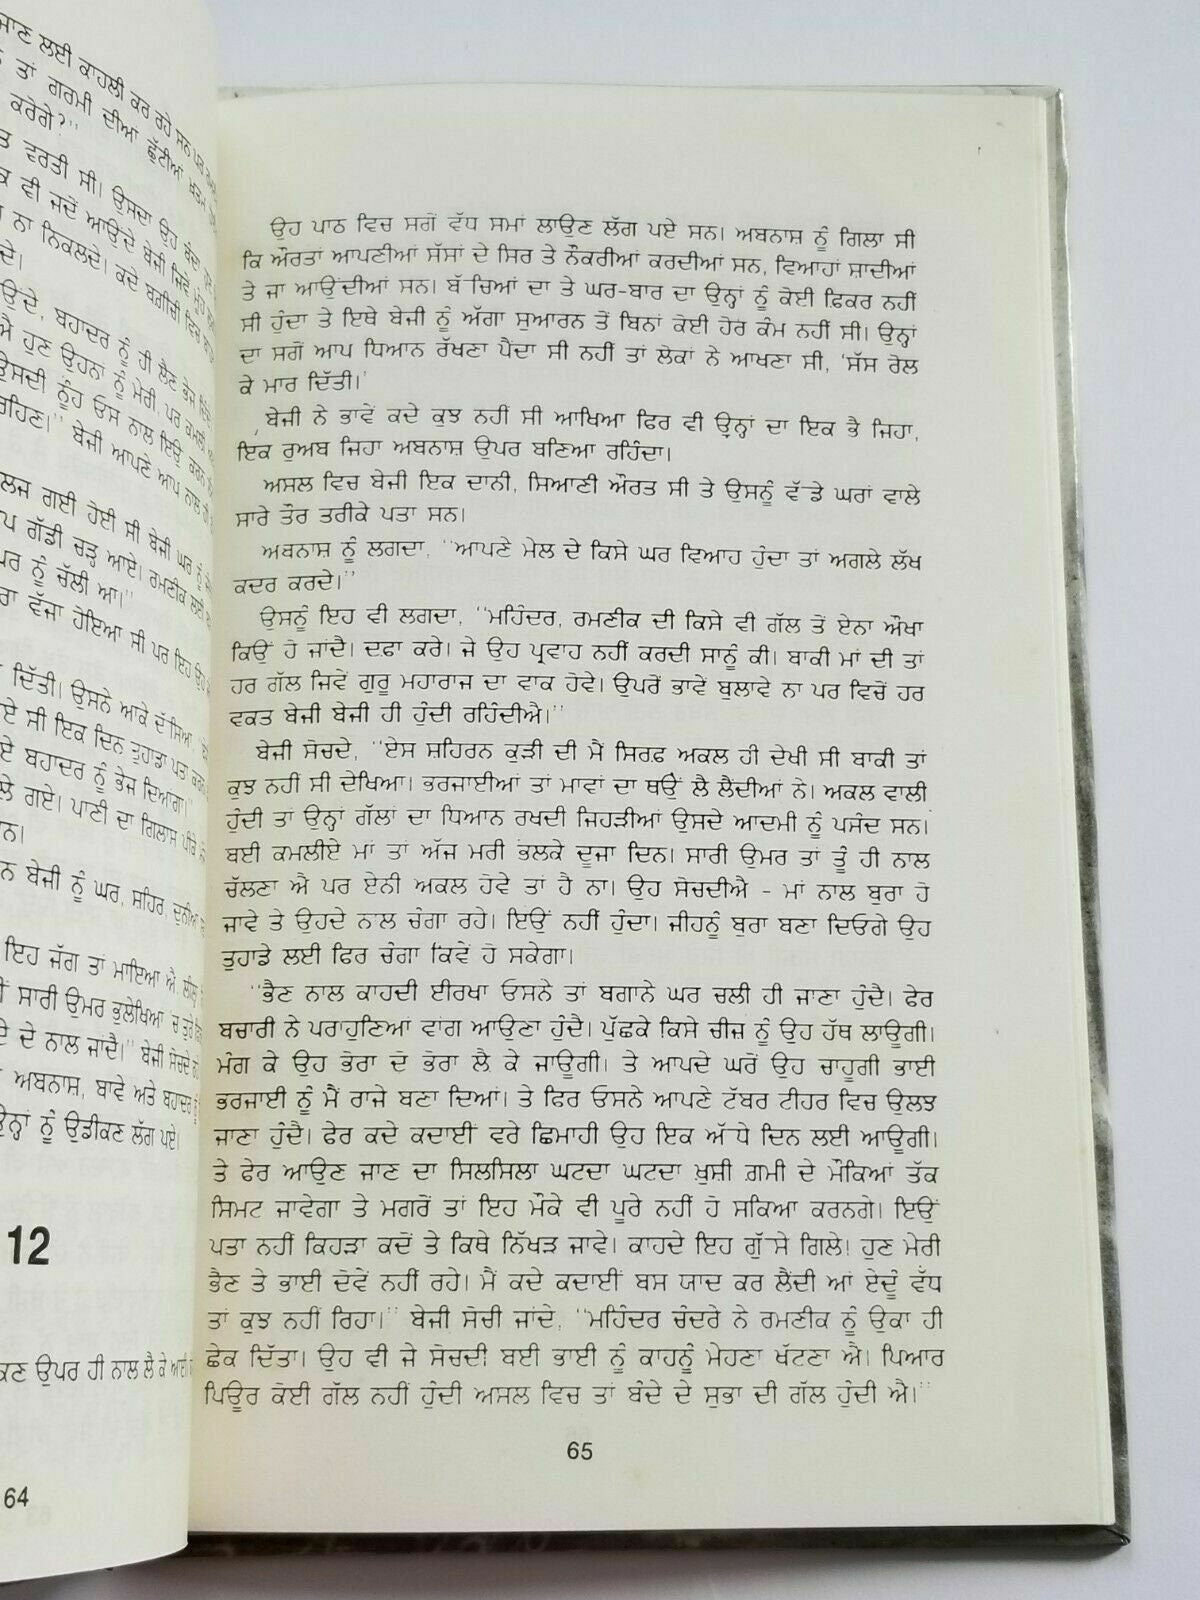 ਜਾਣ ਲਈ ਕਾਹਲੀ ਕਰ ਰਹੇ ਸਨ ਪਰ
ਤਾਂ ਗਰਮੀ ਦੀਆ ਛੁੱਟੀਆਂ ਖ਼ਤਮ
ਕਰੋਗੇ?''
ਵਰਤੀ ਸੀ। ਉਸਦਾ ਉਹ ਬੰਦਾ
ਵੀ ਜਦੋਂ ਆਉਂਦੇ ਬੇਜੀ ਜਿਵੇਂ ਮੂੰਹ
ਨਾ ਨਿਕਲਦੇ। ਕਦੇ ਬਗੀਚੀ ਵਿਚ
ਬਹਾਦਰ ਨੂੰ ਹੀ ਲੈਣ ਭੇਜ
ਐ ਹੁਣ ਉਹਨਾਂ ਨੂੰ ਮੇਰੀ, ਪਰ ਕਮਲੀ
ਉਸਦੀ ਨੂੰਹ ਓਸ ਨਾਲ ਇਉਂ ਕਰਨ
ਰਹਿਣ।'' ਬੇਜੀ ਆਪਣੇ ਆਪ ਨਾਲ ਹੀ
ਗਈ ਹੋਈ ਸੀ ਬੇਜੀ ਘਰ ਨੂੰ
ਗੱਡੀ ਚੜ੍ਹ ਆਏ। ਰਮਣੀਕ ਲਈ
ਨੂੰ ਚੱਲੀ ਆ।''
ਵੱਜਾ ਹੋਇਆ ਸੀ ਪਰ ਇਹ ਉਹ
ਦਿੱਤੀ। ਉਸਨੇ ਆਕੇ ਦੱਸਿਆ,
ਸੀ ਇਕ ਦਿਨ ਤੁਹਾਡਾ ਪਤਾ ਕਰਨ
ਬਹਾਦਰ ਨੂੰ ਭੇਜ ਦਿਆਂਗਾ।''
ਗਏ। ਪਾਣੀ ਦਾ ਗਿਲਾਸ ਪੀਕੇ
ਬੇਜੀ ਨੂੰ ਘਰ, ਸ਼ਹਿਰ, ਦੁਨੀਆਂ
ਇਹ ਜੱਗ ਤਾਂ ਮਾਇਆ ਐ,
ਸਾਰੀ ਉਮਰ ਭੁਲੇਖਿਆਂ 'ਚ ਤੁਰੇ
ਦੇ ਨਾਲ ਜਾਂਦੈ।'' ਬੇਜੀ ਸੋਚਦੇ
ਅਬਨਾਸ਼, ਬਾਵੇ ਅਤੇ ਬਹਾਦਰ ਨੂੰ
ਨੂੰ ਉਡੀਕਣ ਲੱਗ ਪਏ।
12
ਉਪਰ ਹੀ ਨਾਲ ਲੈ ਕੇ ਆਈ
64
ਉਹ ਪਾਠ ਵਿਚ ਸਗੋਂ ਵੱਧ ਸਮਾਂ ਲਾਉਣ ਲੱਗ ਪਏ ਸਨ। ਅਬਨਾਸ਼ ਨੂੰ ਗਿਲਾ ਸੀ
ਕਿ ਔਰਤਾਂ ਆਪਣੀਆਂ ਸੱਸਾਂ ਦੇ ਸਿਰ ਤੇ ਨੌਕਰੀਆਂ ਕਰਦੀਆਂ ਸਨ, ਵਿਆਹਾਂ ਸ਼ਾਦੀਆਂ
ਤੇ ਜਾ ਆਉਂਦੀਆਂ ਸਨ। ਬੱਚਿਆਂ ਦਾ ਤੇ ਘਰ-ਬਾਰ ਦਾ ਉਨ੍ਹਾਂ ਨੂੰ ਕੋਈ ਫਿਕਰ ਨਹੀਂ
ਸੀ ਹੁੰਦਾ ਤੇ ਇਥੇ ਬੇਜੀ ਨੂੰ ਅੱਗਾ ਸੁਆਰਨ ਤੋਂ ਬਿਨਾਂ ਕੋਈ ਹੋਰ ਕੰਮ ਨਹੀਂ ਸੀ। ਉਨ੍ਹਾਂ
ਦਾ ਸਗੋਂ ਆਪ ਧਿਆਨ ਰੱਖਣਾ ਪੈਂਦਾ ਸੀ ਨਹੀਂ ਤਾਂ ਲੋਕਾਂ ਨੇ ਆਖਣਾ ਸੀ, 'ਸੱਸ ਰੋਲ
ਕੇ ਮਾਰ ਦਿੱਤੀ।'
ਬੇਜੀ ਨੇ ਭਾਵੇਂ ਕਦੇ ਕੁਝ ਨਹੀਂ ਸੀ ਆਖਿਆ ਫਿਰ ਵੀ ਉਨ੍ਹਾਂ ਦਾ ਇਕ ਭੈ ਜਿਹਾ,
ਇਕ ਰੁਅਬ ਜਿਹਾ ਅਬਨਾਸ਼ ਉਪਰ ਬਣਿਆ ਰਹਿੰਦਾ।
ਅਸਲ ਵਿਚ ਬੇਜੀ ਇਕ ਦਾਨੀ, ਸਿਆਣੀ ਔਰਤ ਸੀ ਤੇ ਉਸਨੂੰ ਵੱਡੇ ਘਰਾਂ ਵਾਲੇ
ਸਾਰੇ ਤੌਰ ਤਰੀਕੇ ਪਤਾ ਸਨ।
ਅਬਨਾਸ਼ ਨੂੰ ਲਗਦਾ, ''ਆਪਣੇ ਮੇਲ ਦੇ ਕਿਸੇ ਘਰ ਵਿਆਹ ਹੁੰਦਾ ਤਾਂ ਅਗਲੇ ਲੱਖ
ਕਦਰ ਕਰਦੇ।''
ਉਸਨੂੰ ਇਹ ਵੀ ਲਗਦਾ, ''ਮਹਿੰਦਰ, ਰਮਣੀਕ ਦੀ ਕਿਸੇ ਵੀ ਗੱਲ ਤੋਂ ਏਨਾ ਔਖਾ
ਕਿਉਂ ਹੋ ਜਾਂਦੈ। ਦਫ਼ਾ ਕਰੇ। ਜੇ ਉਹ ਪ੍ਰਵਾਹ ਨਹੀਂ ਕਰਦੀ ਸਾਨੂੰ ਕੀ। ਬਾਕੀ ਮਾਂ ਦੀ ਤਾਂ
ਹਰ ਗੱਲ ਜਿਵੇਂ ਗੁਰੂ ਮਹਾਰਾਜ ਦਾ ਵਾਕ ਹੋਵੇ। ਉਪਰੋਂ ਭਾਵੇਂ ਬੁਲਾਵੇ ਨਾ ਪਰ ਵਿਚੋਂ ਹਰ
ਵਕਤ ਬੇਜੀ ਬੇਜੀ ਹੀ ਹੁੰਦੀ ਰਹਿੰਦੀਐ।''
ਬੇਜੀ ਸੋਚਦੇ, ''ਏਸ ਸ਼ਹਿਰਨ ਕੁੜੀ ਦੀ ਮੈਂ ਸਿਰਫ਼ ਅਕਲ ਹੀ ਦੇਖੀ ਸੀ ਬਾਕੀ ਤਾਂ
ਕੁਝ ਨਹੀਂ ਸੀ ਦੇਖਿਆ। ਭਰਜਾਈਆਂ ਤਾਂ ਮਾਵਾਂ ਦਾ ਥਉਂ ਲੈ ਲੈਂਦੀਆਂ ਨੇ। ਅਕਲ ਵਾਲੀ
ਹੁੰਦੀ ਤਾਂ ਉਨ੍ਹਾਂ ਗੱਲਾਂ ਦਾ ਧਿਆਨ ਰਖਦੀ ਜਿਹੜੀਆਂ ਉਸਦੇ ਆਦਮੀ ਨੂੰ ਪਸੰਦ ਸਨ।
ਬਈ ਕਮਲੀਏ ਮਾਂ ਤਾਂ ਅੱਜ ਮਰੀ ਭਲਕੇ ਦੂਜਾ ਦਿਨ। ਸਾਰੀ ਉਮਰ ਤਾਂ ਤੂੰ ਹੀ ਨਾਲ
ਚੱਲਣਾ ਐ ਪਰ ਏਨੀ ਅਕਲ ਹੋਵੇ ਤਾਂ ਹੈ ਨਾ। ਉਹ ਸੋਚਦੀਐ - ਮਾਂ ਨਾਲ ਬੁਰਾ ਹੋ
ਜਾਵੇ ਤੇ ਉਹਦੇ ਨਾਲ ਚੰਗਾ ਰਹੇ। ਇਉਂ ਨਹੀਂ ਹੁੰਦਾ। ਜੀਹਨੂੰ ਬੁਰਾ ਬਣਾ ਦਿਓਗੇ ਉਹ
ਤੁਹਾਡੇ ਲਈ ਫਿਰ ਚੰਗਾ ਕਿਵੇਂ ਹੋ ਸਕੇਗਾ।
''ਭੈਣ ਨਾਲ ਕਾਹਦੀ ਈਰਖਾ ਓਸਨੇ ਤਾਂ ਬਗਾਨੇ ਘਰ ਚਲੀ ਹੀ ਜਾਣਾ ਹੁੰਦੈ। ਫੇਰ
ਬਚਾਰੀ ਨੇ ਪਰਾਹੁਣਿਆਂ ਵਾਂਗ ਆਉਣਾ ਹੁੰਦੈ। ਪੁੱਛਕੇ ਕਿਸੇ ਚੀਜ਼ ਨੂੰ ਉਹ ਹੱਥ ਲਾਊਗੀ।
ਮੰਗ ਕੇ ਉਹ ਭੋਰਾ ਦੋ ਭੋਰਾ ਲੈ ਕੇ ਜਾਊਗੀ। ਤੇ ਆਪਦੇ ਘਰੋਂ ਉਹ ਚਾਹੂਗੀ ਭਾਈ
ਭਰਜਾਈ ਨੂੰ ਮੈਂ ਰਾਜੇ ਬਣਾ ਦਿਆਂ। ਤੇ ਫਿਰ ਓਸਨੇ ਆਪਣੇ ਟੱਬਰ ਟੀਹਰ ਵਿਚ ਉਲਝ
ਜਾਣਾ ਹੁੰਦੈ। ਫੇਰ ਕਦੇ ਕਦਾਈਂ ਵਰੇ ਛਿਮਾਹੀ ਉਹ ਇਕ ਅੱਧੇ ਦਿਨ ਲਈ ਆਊਗੀ।
ਤੇ ਫੇਰ ਆਉਣ ਜਾਣ ਦਾ ਸਿਲਸਿਲਾ ਘਟਦਾ ਘਟਦਾ ਖ਼ੁਸ਼ੀ ਗ਼ਮੀ ਦੇ ਮੌਕਿਆਂ ਤੱਕ
ਸਿਮਟ ਜਾਵੇਗਾ ਤੇ ਮਗਰੋਂ ਤਾਂ ਇਹ ਮੌਕੇ ਵੀ ਪੂਰੇ ਨਹੀਂ ਹੋ ਸਕਿਆ ਕਰਨਗੇ। ਇਉਂ
ਪਤਾ ਨਹੀਂ ਕਿਹੜਾ ਕਦੋਂ ਤੇ ਕਿਥੇ ਨਿੱਖੜ ਜਾਵੇ। ਕਾਹਦੇ ਇਹ ਗੁੱਸੇ ਗਿਲੇ! ਹੁਣ ਮੇਰੀ
ਭੈਣ ਤੇ ਭਾਈ ਦੋਵੇਂ ਨਹੀਂ ਰਹੇ। ਮੈਂ ਕਦੇ ਕਦਾਈਂ ਬਸ ਯਾਦ ਕਰ ਲੈਂਦੀ ਆਂ ਏਦੂੰ ਵੱਧ
ਤਾਂ ਕੁਝ ਨਹੀਂ ਰਿਹਾ।'' ਬੇਜੀ ਸੋਚੀ ਜਾਂਦੇ, ''ਮਹਿੰਦਰ ਚੰਦਰੇ ਨੇ ਰਮਣੀਕ ਨੂੰ ਉਕਾ ਹੀ
ਛੇਕ ਦਿੱਤਾ। ਉਹ ਵੀ ਜੇ ਸੋਚਦੀ ਬਈ ਭਾਈ ਨੂੰ ਕਾਹਨੂੰ ਮੇਹਣਾ ਖੱਟਣਾ ਐ। ਪਿਆਰ
ਪਿਊਰ ਕੋਈ ਗੱਲ ਨਹੀਂ ਹੁੰਦੀ ਅਸਲ ਵਿਚ ਤਾਂ ਬੰਦੇ ਦੇ ਸੁਭਾ ਦੀ ਗੱਲ ਹੁੰਦੀ ਐ।''
65